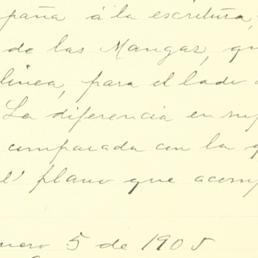 paña á la escritura,
de las Mangas, qu
linea, para el lado d
La diferencia en sup
comparada con la q
el plano que acomp
nero 5 de 1905